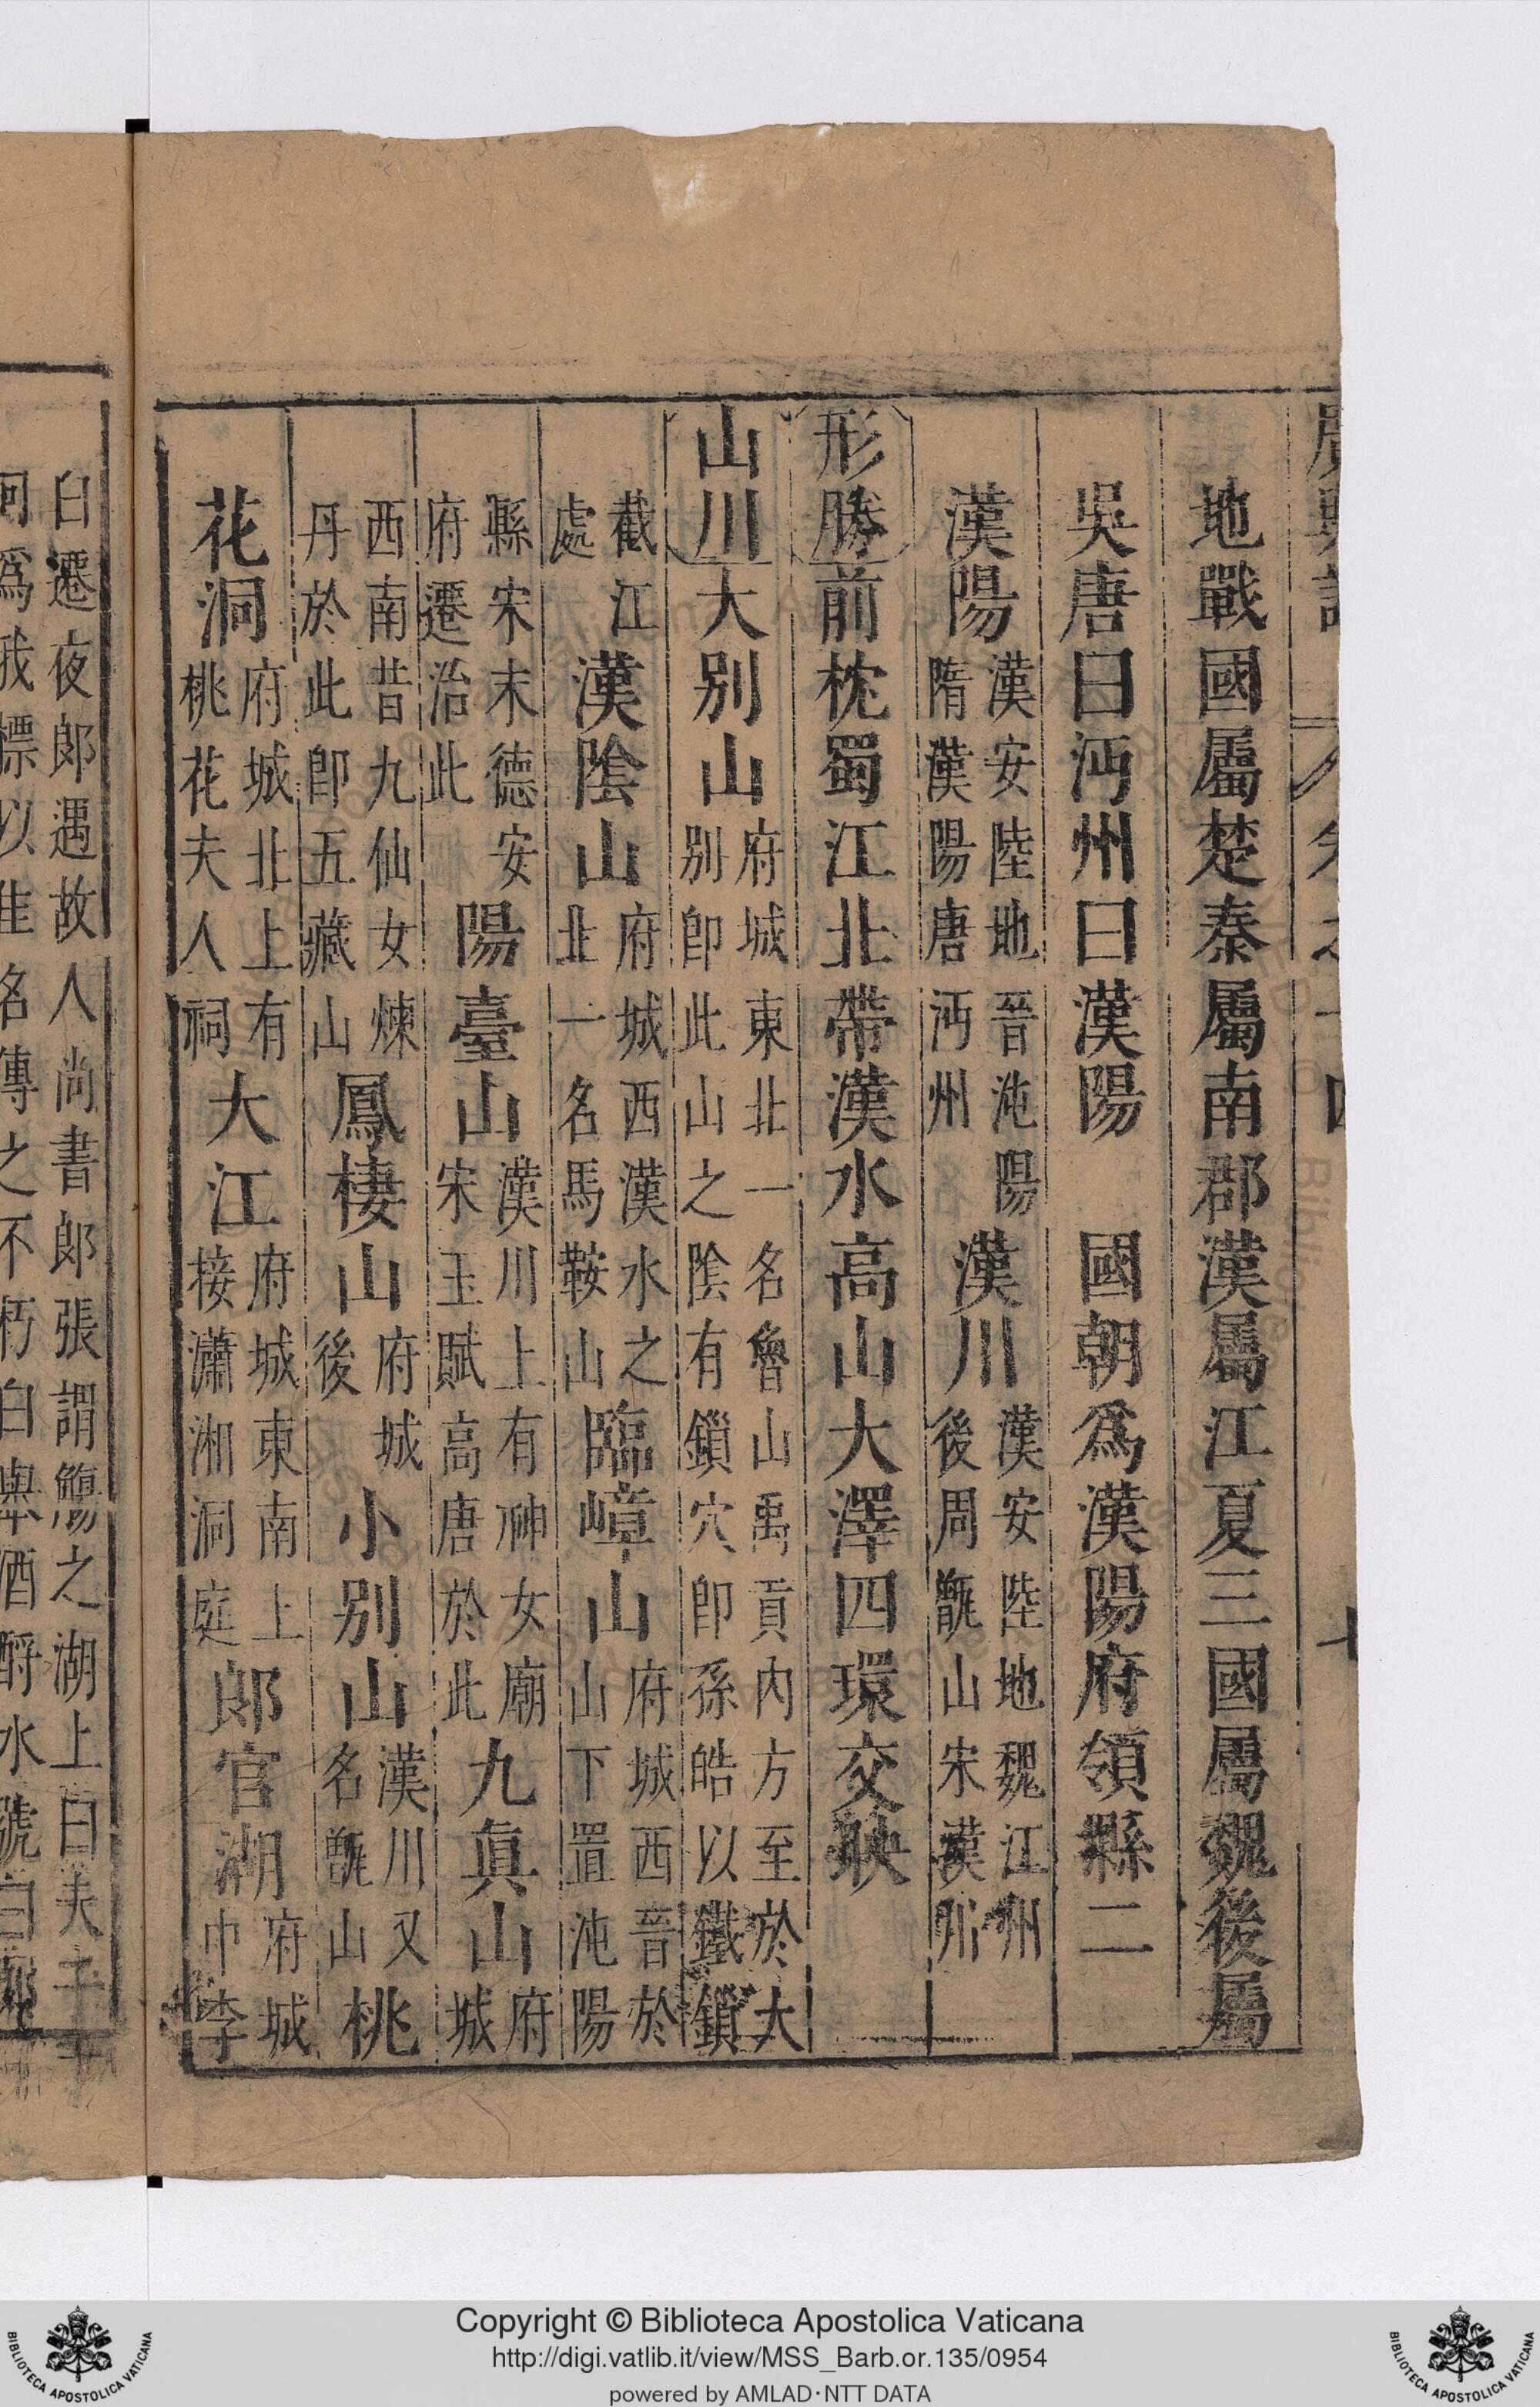 地戰國屬楚秦屬南郡漢屬江夏三國屬魏後屬
吳唐曰沔州曰漢陽 國朝爲漢陽府領縣二
漢陽 漢安陸地晉沌陽 隋漢陽唐沔州 漢川 漢安陸地魏江州 後周甑山宋漢川
形勝 前枕蜀江北帶漢水高山大澤四環交映
山川 大别山 府城東北一名魯山禹貢内方至於大 别卽此山之陰有鎖穴卽孫皓以鐵鎖
截江 處 漢陰山 府城西漢水之 北一名馬鞍山 臨嶂山 府城西晉於 山下置沌陽
縣宋末德安 府遷治此 陽臺山 漢川上有神女廟 宋玉賦高唐於此 九眞山 府 城
西南昔九仙女煉 丹於此卽五藏山 鳳棲山 府城 後 小别山 漢川又 名甑山 桃
花洞 府城北上有 桃花夫人祠 大江 府城東南上 接瀟湘洞庭 郎官湖 府城 中李
白遷夜郎遇故人尚書郎張謂觴之湖上曰夫子
爲我標以佳名傳之不朽白舉酒酹水號曰郎
Copyright © Biblioteca Apostolica Vaticana
http://digi.vatlib.it/view/MSS_Barb.or.135/0954
powered by AMLAD·NTT DATA
BIBLIOTECA APOSTOLICA VATICANA
BIBLIOTECA APOSTOLICA VATICANA